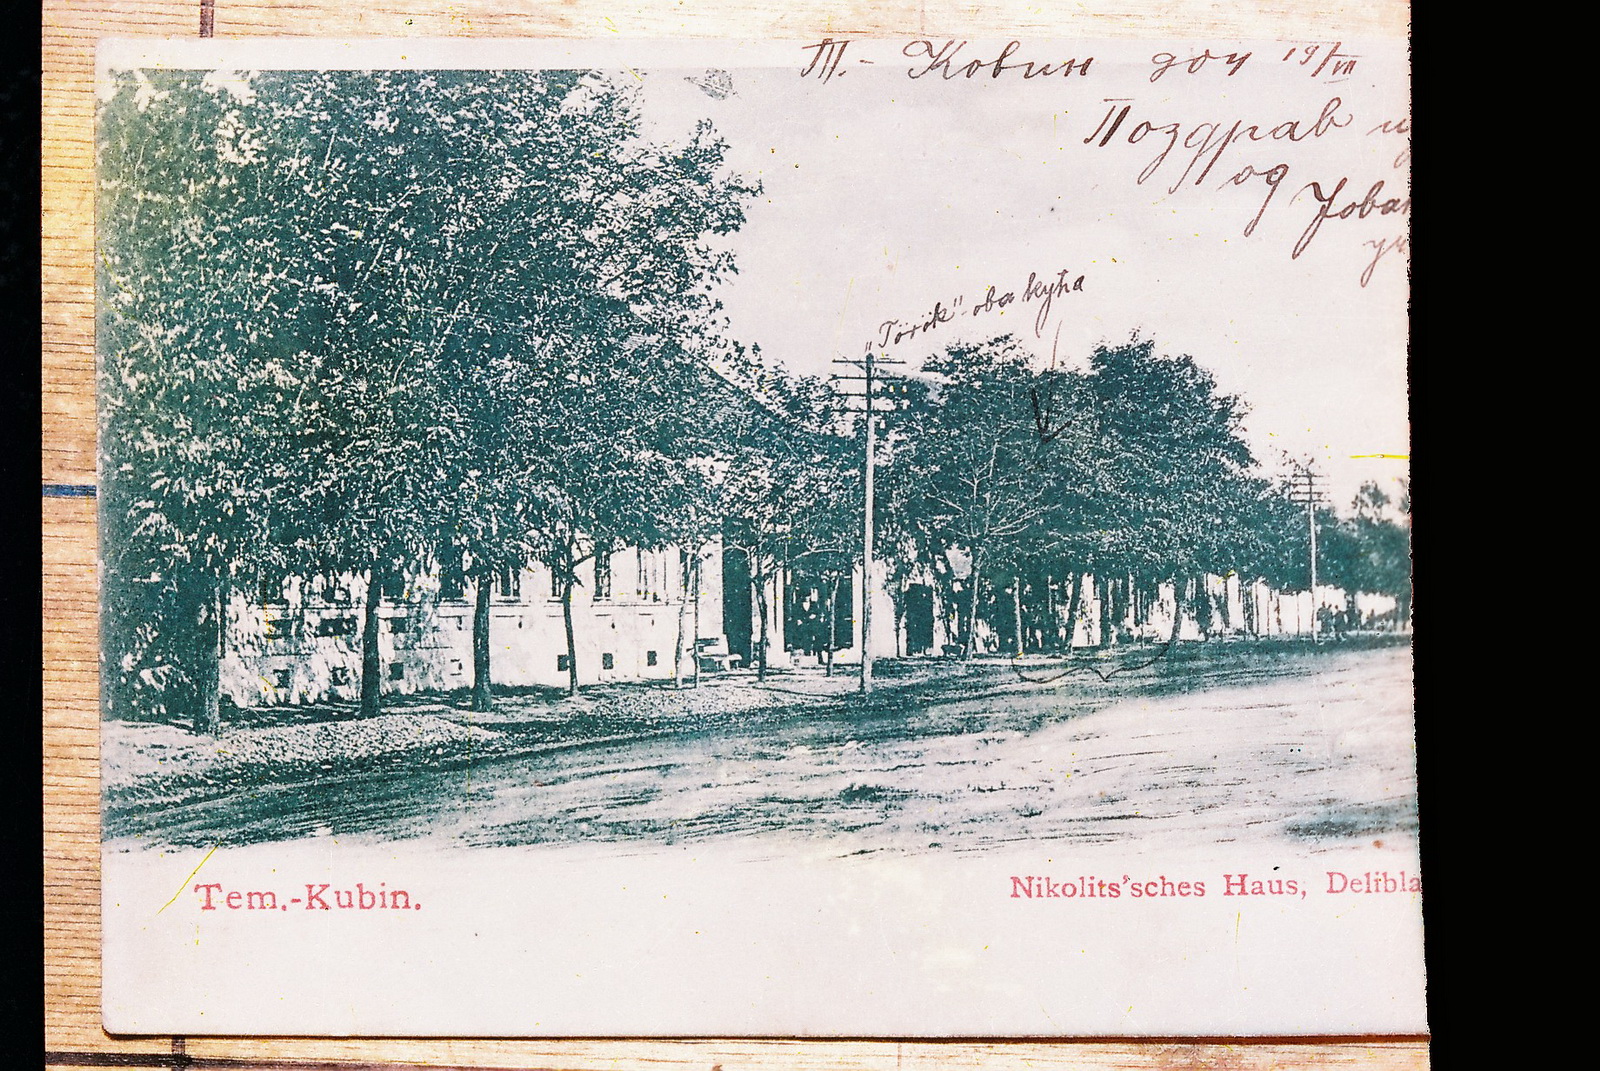 Т.- Ковин 904 19/VII
Поздрав и
од
Јован
уч
„Török"-ова кућа
Tem.-Kubin.
Nikolits'sches Haus, Delibla